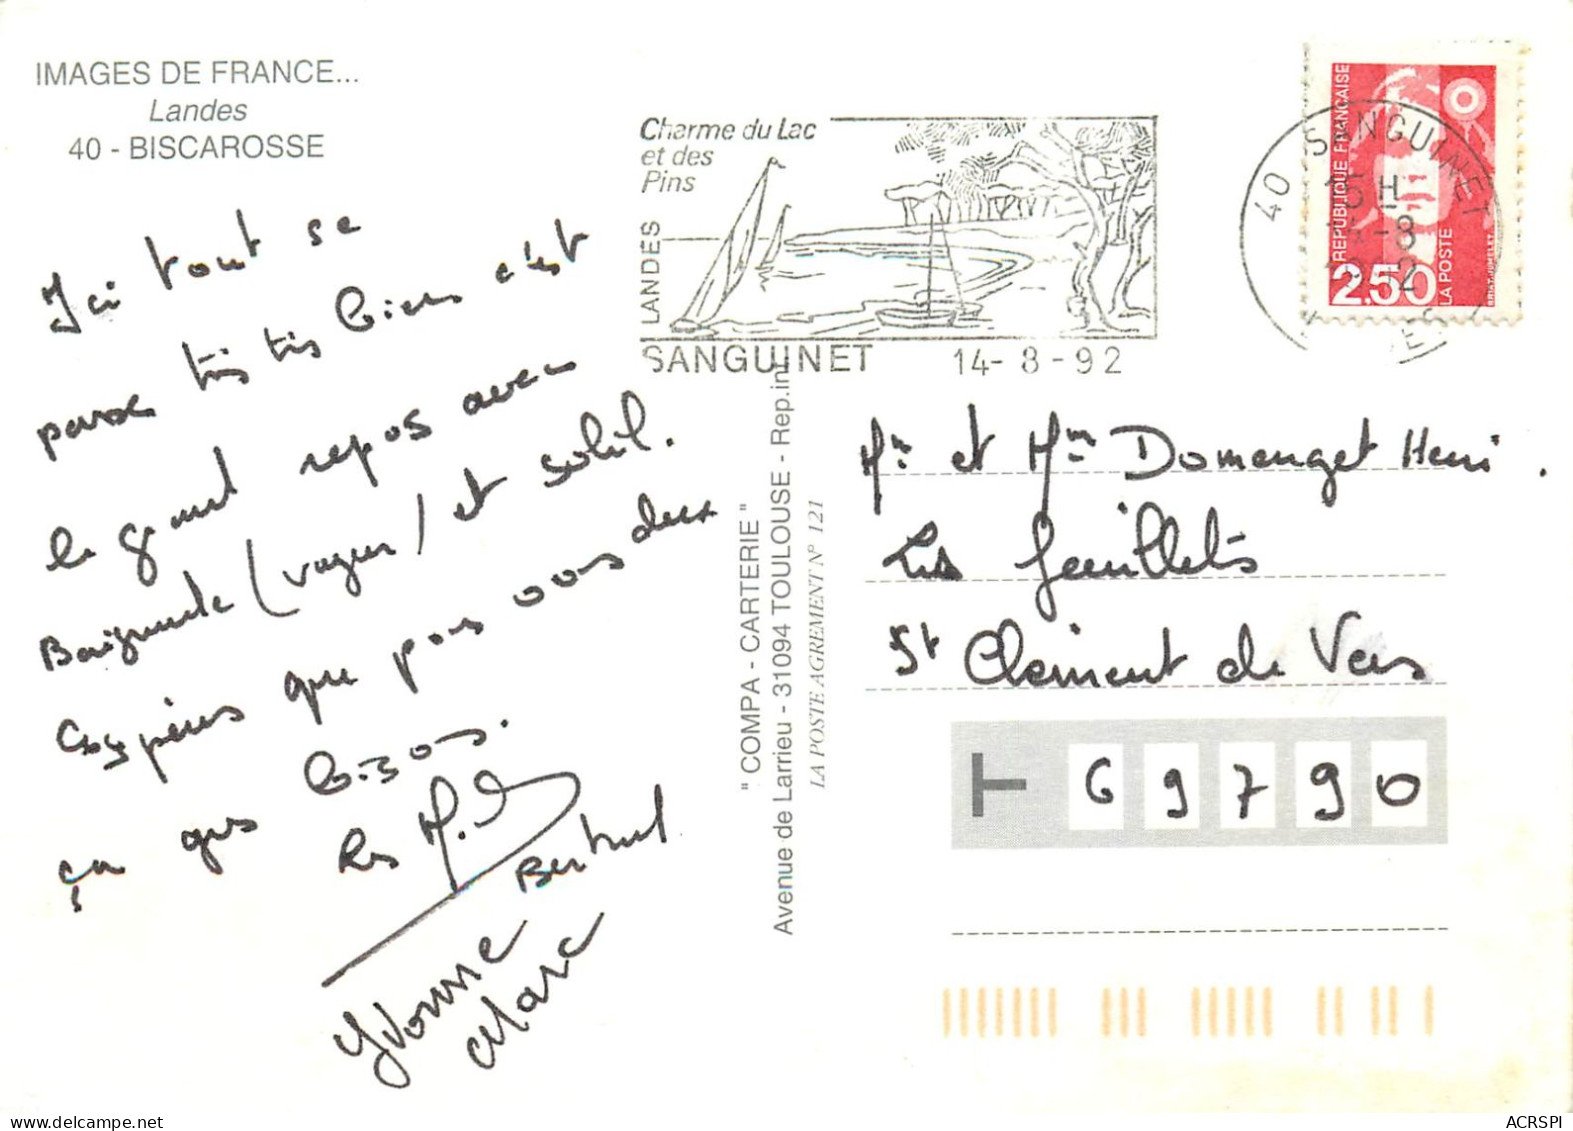 IMAGES DE FRANCE...
Landes
40 - BISCAROSSE
Ici tout se
passe très très bien c'est
le grand repos avec
Baignade (vagues) et soleil.
Espérons que pour vous deux
ça gus bisous.
Les
Bertrand
Yvonne
Marc
" COMPA - CARTERIE "
Avenue de Larrieu - 31094 TOULOUSE - Rep.int
LA POSTE AGREMENT N° 121
Charme du Lac
et des
Pins
LANDES
SANGUINET 14-8-92
40 SANGUINET
15 H
14-8
REPUBLIQUE FRANÇAISE
2,50
LA POSTE
BRIAT-JUMELET
Mr et Mme Domenget Henri.
Les feuillets
St Clement de Vers
T 69790
ACRSPI